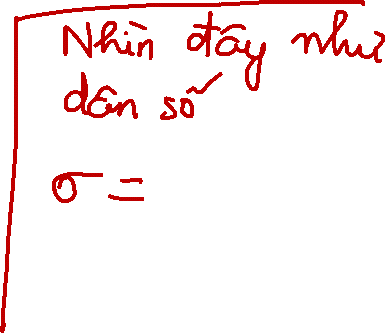 Nhìn đây như
dân số
σ =